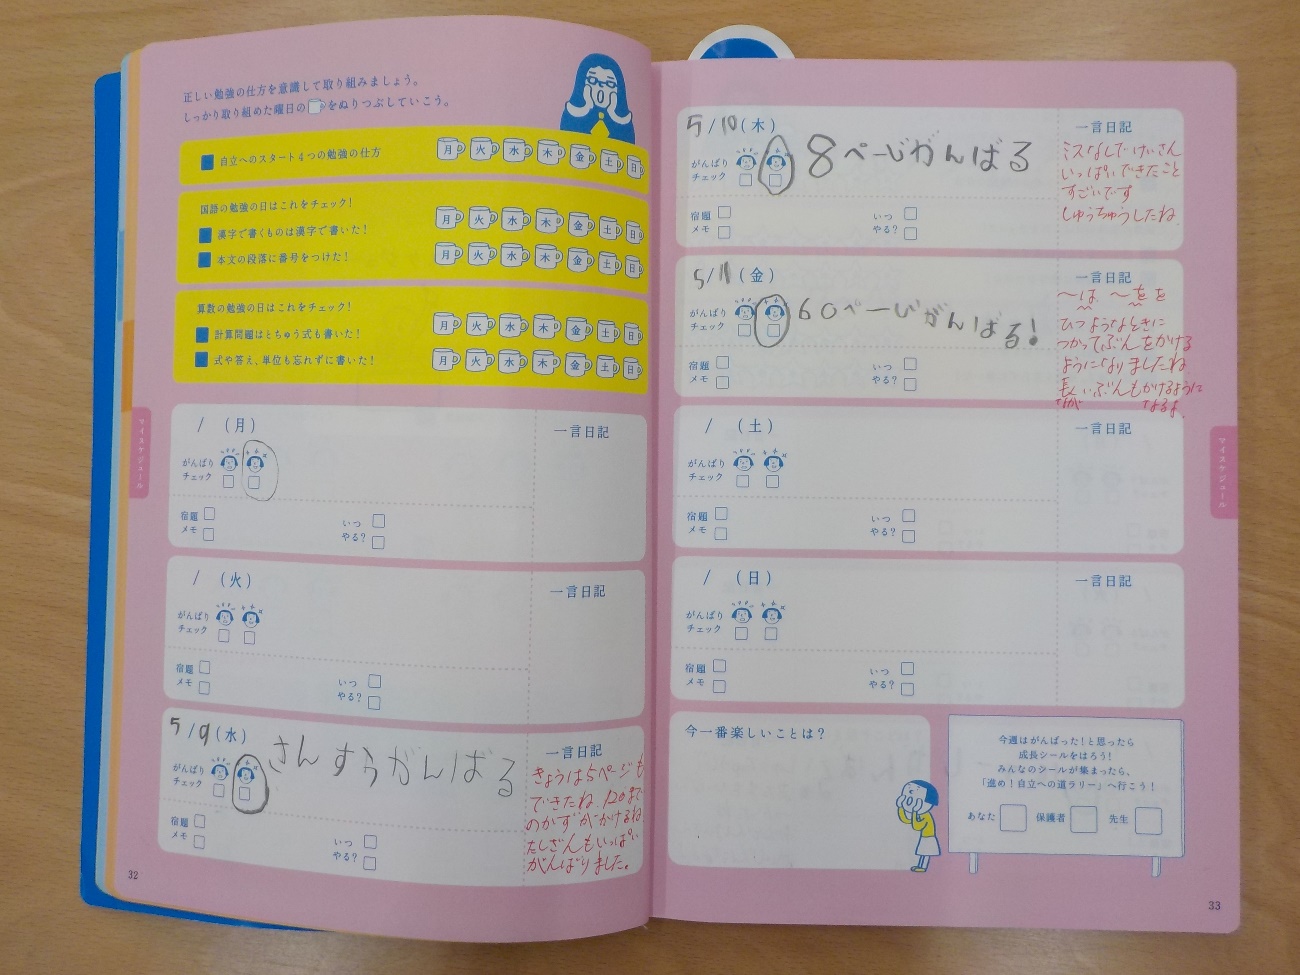 正しい勉強の仕方を意識して取り組みましょう。
しっかり取り組めた曜日の をぬりつぶしていこう。
自立へのスタート4つの勉強の仕方
月 火 水 木 金 土 日
国語の勉強の日はこれをチェック!
漢字で書くものは漢字で書いた!
月 火 水 木 金 土 日
本文の段落に番号をつけた!
月 火 水 木 金 土 日
算数の勉強の日はこれをチェック!
計算問題はとちゅう式も書いた!
月 火 水 木 金 土 日
式や答え、単位も忘れずに書いた!
月 火 水 木 金 土 日
マイスケジュール
/ (月)
一言日記
がんばり
チェック
宿題
メモ
いつ
やる?
/ (火)
一言日記
がんばり
チェック
宿題
メモ
いつ
やる?
5/9(水)
さんすうがんばる
がんばり
チェック
宿題
メモ
いつ
やる?
一言日記
きょうは5ページも
できたね。120まで
のかずがかけるね
たしざんもいっぱい
がんばりました。
32
5/10(木)
8ページがんばる
がんばり
チェック
宿題
メモ
いつ
やる?
一言日記
ミスなしでけいさん
いっぱいできたこと
すごいです
しゅうちゅうしたね。
5/11(金)
60ページがんばる!
がんばり
チェック
宿題
メモ
いつ
やる?
一言日記
〜は 〜を を
ひつようなときに
つかってぶんをかける
ようになりましたね
長いぶんもかけるように
なが なるよ。
/ (土)
一言日記
がんばり
チェック
宿題
メモ
いつ
やる?
/ (日)
一言日記
がんばり
チェック
宿題
メモ
いつ
やる?
今一番楽しいことは?
今週はがんばった!と思ったら
成長シールをはろう!
みんなのシールが集まったら、
「進め!自立への道ラリー」へ行こう!
あなた 保護者 先生
マイスケジュール
33